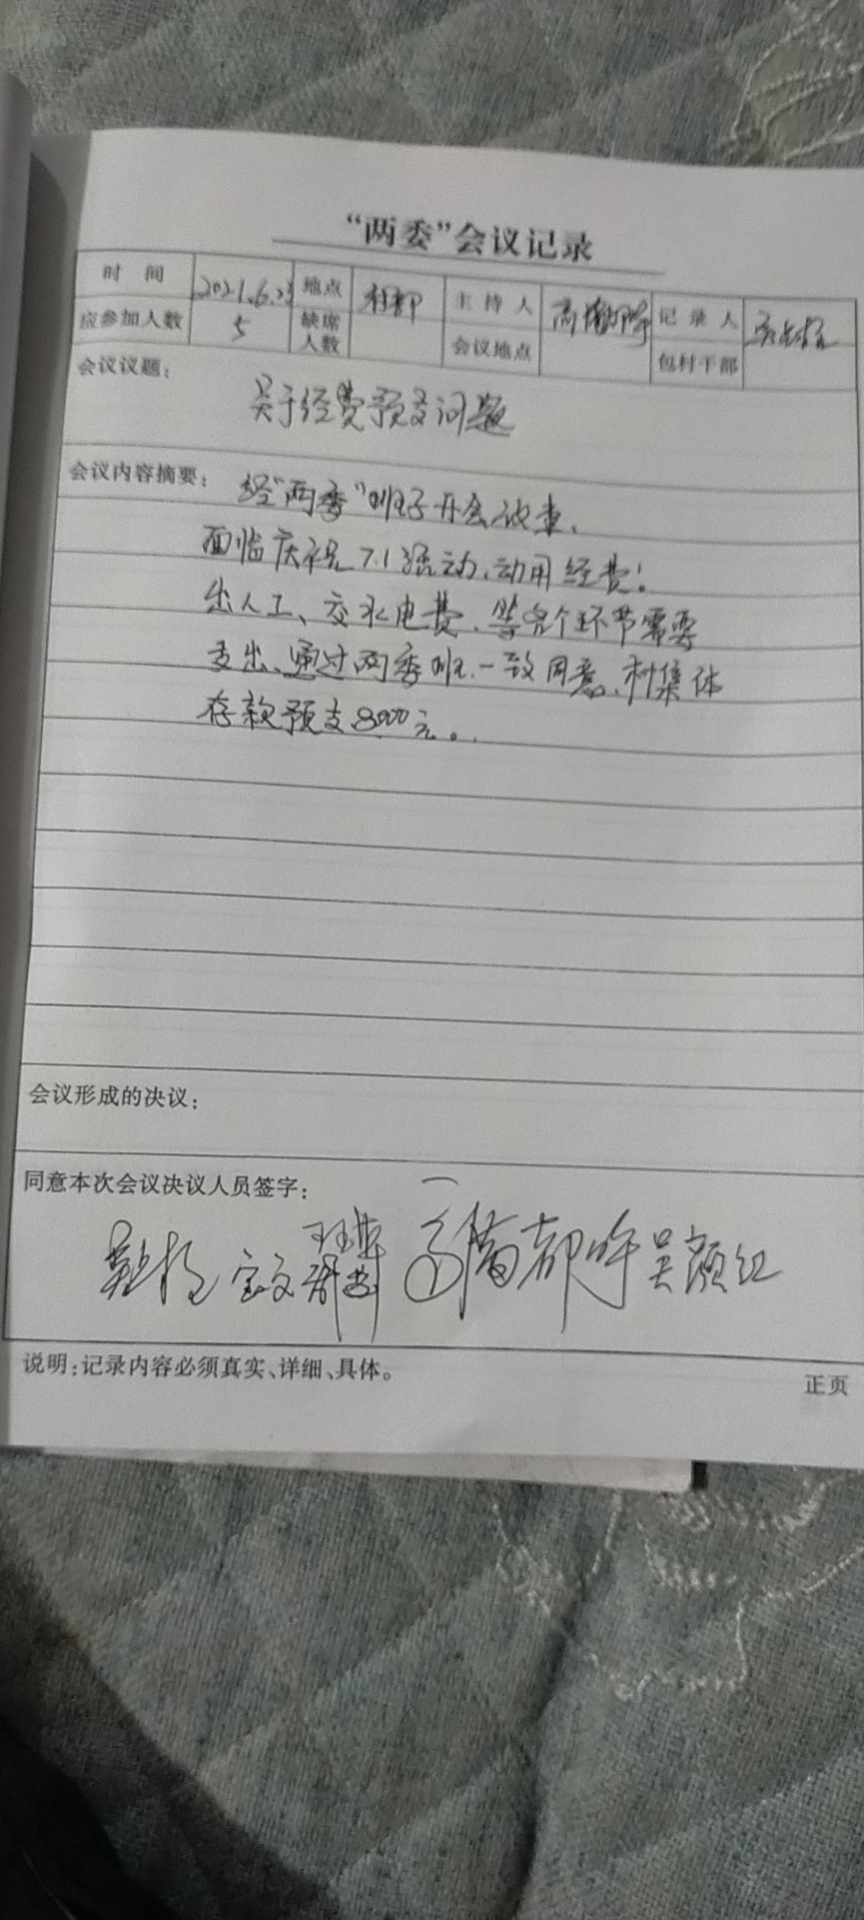 “两委”会议记录
时 间 2021.6.23 地点 村部 主 持 人 记 录 人
应参加人数 5 缺席人数 会议地点 包村干部
会议议题：
关于经费预支问题
会议内容摘要： 经“两委”班子开会
面临庆祝7.1活动、动用经费！
出人工、交水电费、等各个环节需要
支出、通过两委班、一致同意、村集体
存款预支8000元。
会议形成的决议：
同意本次会议决议人员签字：
吴颜红
说明：记录内容必须真实、详细、具体。
正页